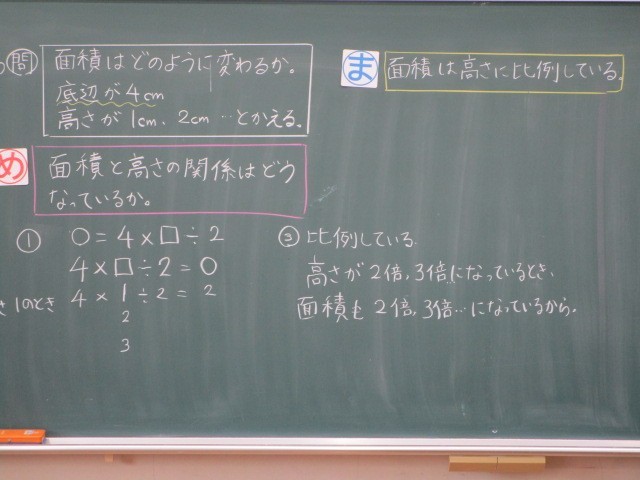 問
面積はどのように変わるか。
底辺が4cm
高さが1cm、2cm…とかえる。
め
面積と高さの関係はどう
なっているか。
① ○=4×□÷2
4×□÷2=○
さ1のとき 4×1÷2=2
2
3
ま
面積は高さに比例している。
③ 比例している。
高さが2倍,3倍になっているとき、
面積も2倍,3倍…になっているから。